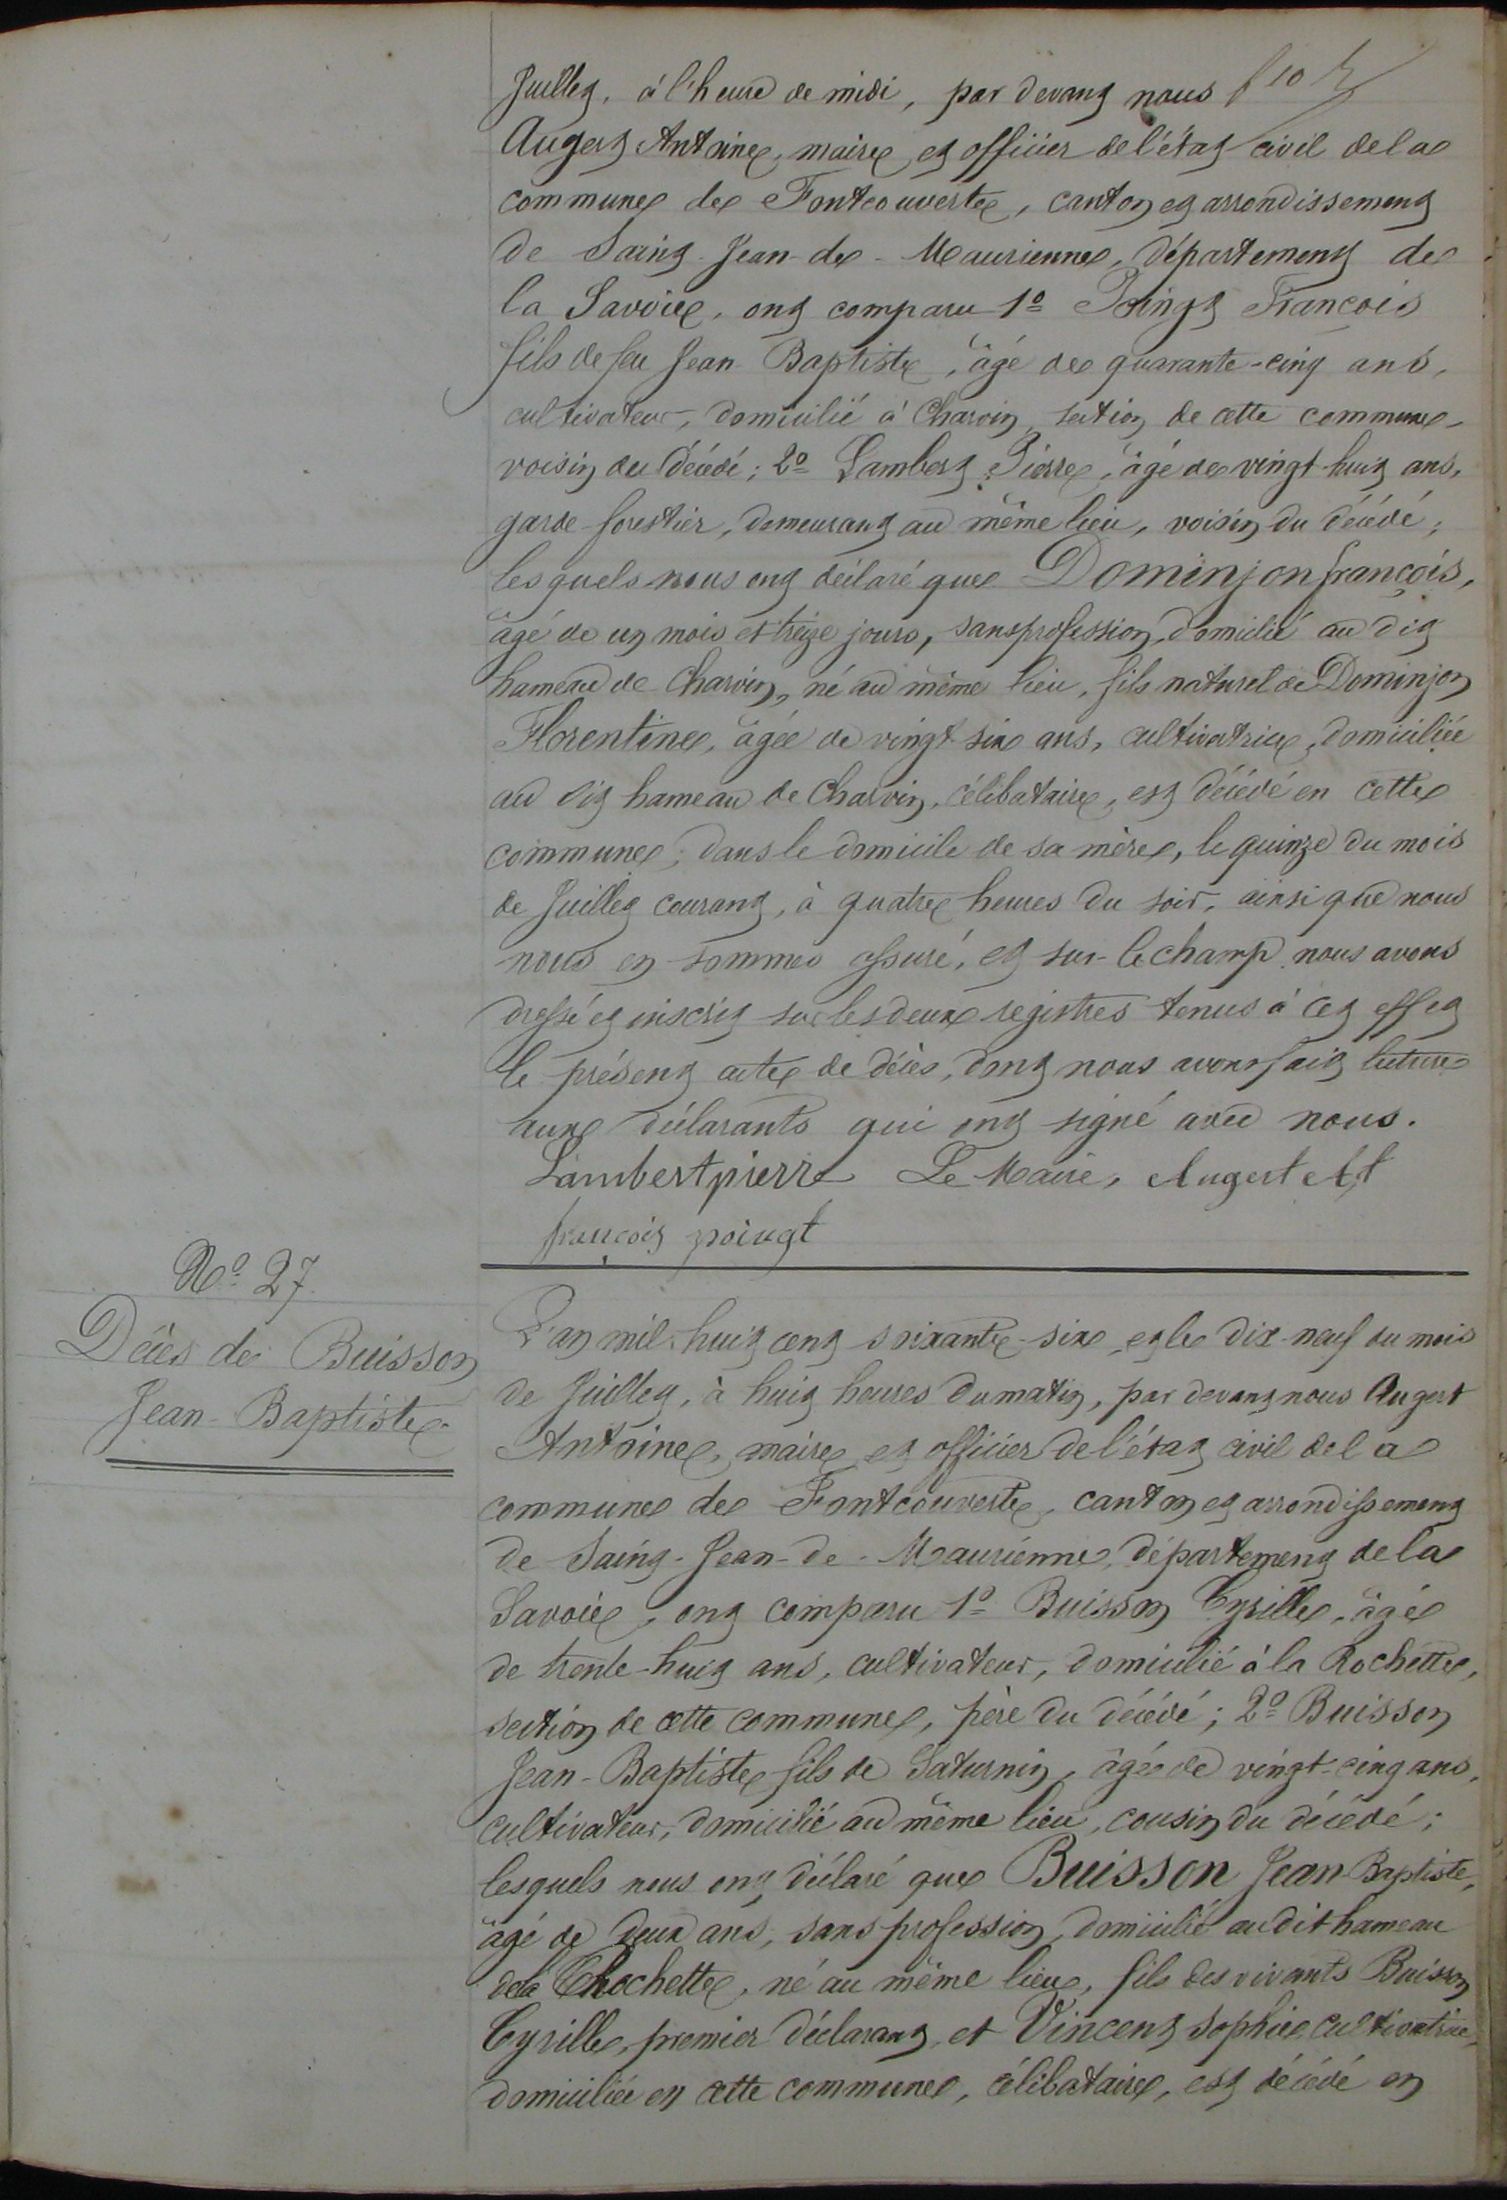 Juillet, à l'heure de midi, par devant nous f 10
Augert Antoine, maire et officier de l'état civil de la
commune de Fontcouverte, canton et arrondissement
de Saint-Jean-de-Maurienne, département de
la Savoie, ont comparu 1º Poingt François
fils de feu Jean Baptiste, âgé de quarante-cinq ans,
cultivateur, domicilié à Charvin, section de cette commune,
voisin du décédé; 2º Lambert Pierre, âgé de vingt-huit ans,
garde-forestier, demeurant au même lieu, voisin du décédé;
lesquels nous ont déclaré que Dominjon françois,
âgé de un mois et treize jours, sans profession, domicilié au dit
hameau de Charvin, né au même lieu, fils naturel de Dominjon
Florentine, âgée de vingt-six ans, cultivatrice, domiciliée
au dit hameau de Charvin, célibataire, est décédé en cette
commune, dans le domicile de sa mère, le quinze du mois
de Juillet courant, à quatre heures du soir, ainsi que nous
nous en sommes assuré, et sur-le champ nous avons
dressé et inscrit sur les deux registres tenus à cet effet
le présent acte de décès, dont nous avons fait lecture
aux déclarants qui ont signé avec nous.
Lambert pierre Le Maire, Augert At
françois poingt
Nº 27
Décès de Buisson
Jean-Baptiste
L'an mil huit cent soixante-six et le dix-neuf du mois
de Juillet, à huit heures du matin, par devant nous Augert
Antoine, maire et officier de l'état civil de la
commune de Fontcouverte, canton et arrondissement
de Saint-Jean-de-Maurienne, département de la
Savoie, ont comparu 1º Buisson Cyrille, âgé
de trente-huit ans, cultivateur, domicilié à la Rochette,
section de cette commune, père du décédé; 2º Buisson
Jean-Baptiste fils de Saturnin, âgé de vingt-cinq ans,
cultivateur, domicilié au même lieu, cousin du décédé;
lesquels nous ont déclaré que Buisson Jean-Baptiste,
âgé de deux ans, sans profession, domicilié au dit hameau
de la Rochette, né au même lieu, fils des vivants Buisson
Cyrille, premier déclarant, et Vincent Sophie cultivatrice,
domiciliée en cette commune, célibataire, est décédé en